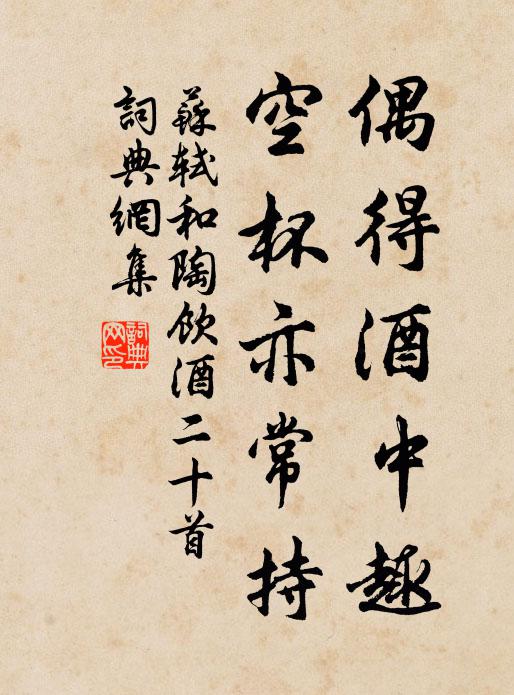 偶得酒中趣
空杯亦常持
蘇軾和陶飲酒二十首
詞典網集
詞典网印